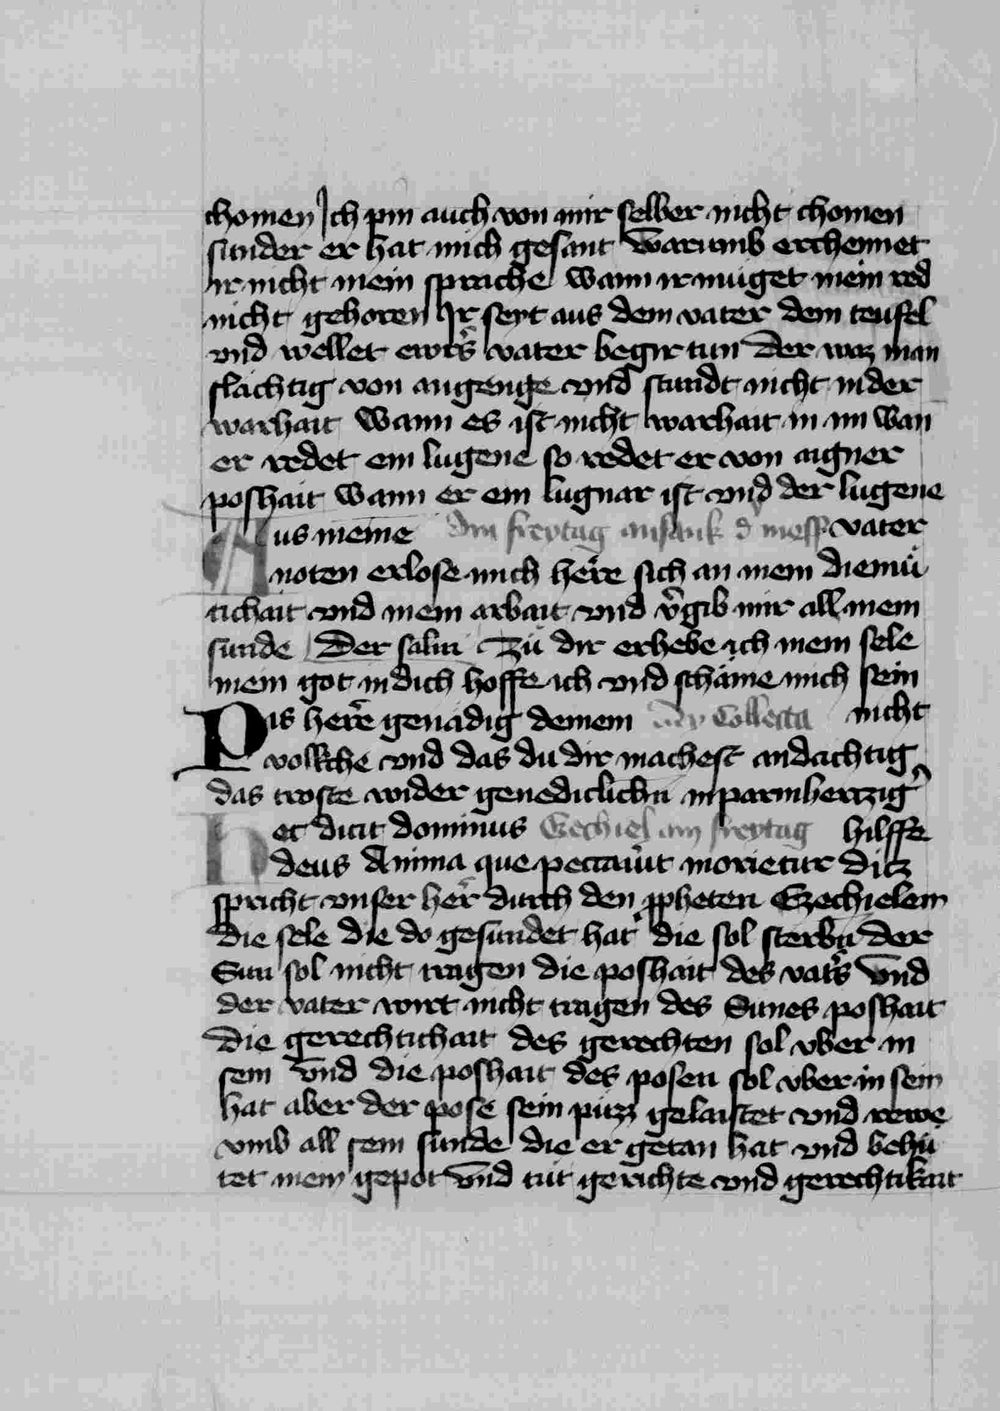 chomen Ich pin auch von mir selber nicht chomen
sunder er hat mich gesant Warumb erchennet
ir nicht mein sprache wann ir muget mein red
nicht gehoren Ir seyt aus dem vater dem teufel
vnd wellet ewrs vater begir tun Der waz man
slachtig von angenge vnd stundt nicht in der
warhait Wann es ist nicht warhait in im Wan
er redet ein lugene so redet er von aigner
poshait Wann er ein lugnar ist vnd der lugene
Aus meine Am freytag anfank d mess vater
noten erlose mich herre sich an mein diemu
tichait vnd mein arbait vnd vgib mir all mein
sunde Der salm Zu dir erhebe ich mein sele
mein got in dich hoffe ich vnd schame mich sein
Pis herre genadig deinem Collecta nicht
volkche vnd das du dir machest andachtig
das troste wider genediclichn inparmhertzig
Hec dicit dominus Ezechiel am freytag hilffe
deus Anima que peccauit morietur Ditz
spricht vnser her durch den ppheten Ezechielem
Die sele die do gesundet hat die sol sterbn der
Sun sol nicht tragen die poshait des vaters vnd
der vater wirt nicht tragen des Sunes poshait
Die gerechtichait des gerechten sol vber in
sein vnd die poshait des posen sol vber in sein
hat aber der pose sein puzz gelaistet vnd rewe
vmb all sein sunde die er getan hat vnd behu
tet mein gepot vnd tut gerichte vnd gerechtikait